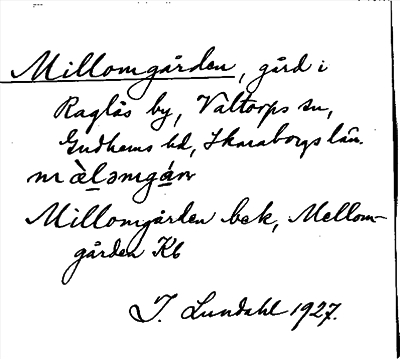 Millomgården, gård i
Raglås by, Valtorps sn,
Gudhems hd, Skaraborgs län.
mèləmgán
Millomgården bek, Mellom-
gården Kb
I. Lundahl 1927.